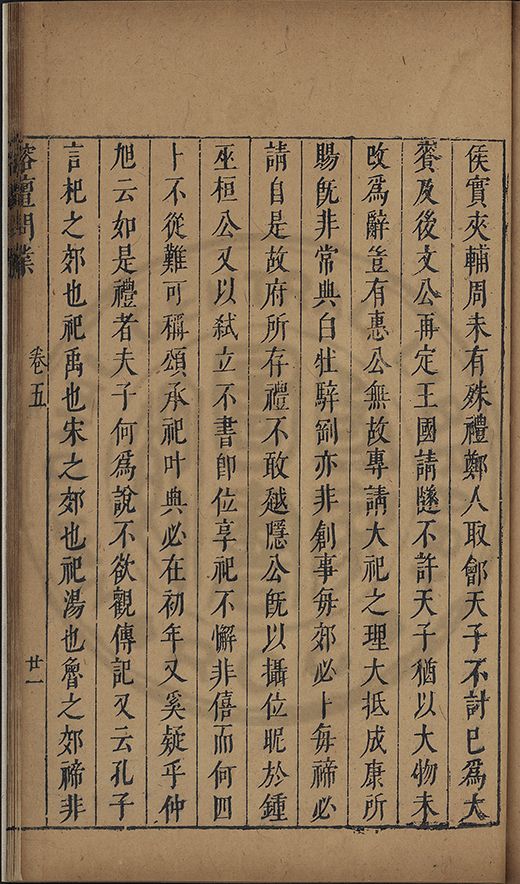 侯實夾輔周未有殊禮鄭人取鄶天子不討巳爲大
賚及後文公再定王國請隧不許天子猶以大物未
改爲辭豈有惠公無故專請大祀之理大抵成康所
賜旣非常典白牡騂剛亦非創事每郊必卜每禘必
請自是故府所存禮不敢越隱公旣以攝位昵於鍾
巫桓公又以弒立不書卽位享祀不懈非僖而何四
卜不從難可稱頌承祀叶典必在初年又奚疑乎仲
旭云如是禮者夫子何爲說不欲觀傳記又云孔子
言杞之郊也祀禹也宋之郊也祀湯也魯之郊禘非
榕壇問業
卷五
廿一